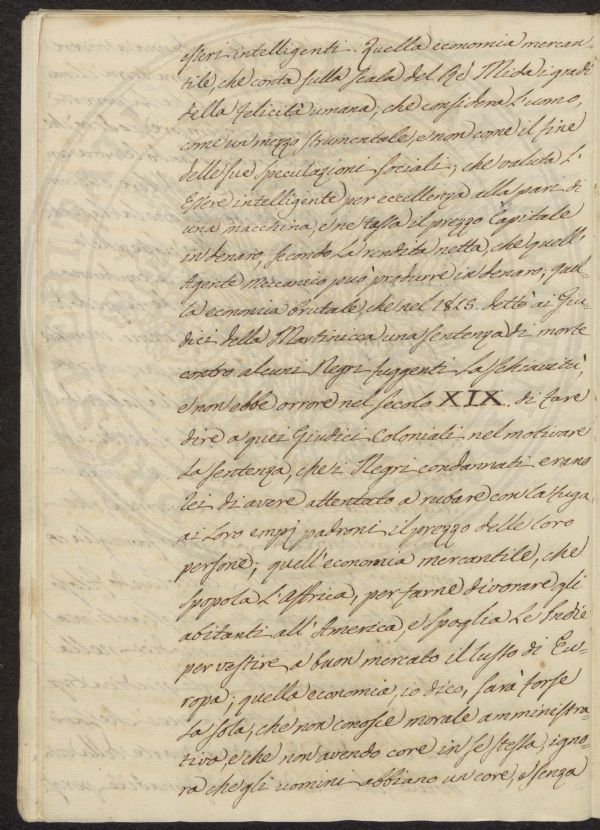 esseri intelligenti. Quella economia mercan-
tile, che conta sulla scala del Rè Mida i gradi
della felicità umana, che considera l'uomo,
come un mezzo strumentale, e non come il fine
delle sue speculazioni sociali; che valuta l'
Essere intelligente per eccellenza alla pari di
una macchina, e ne tassa il prezzo Capitale
in denaro, secondo la rendita netta, che quell'
Agente meccanico può produrre in denaro; quel-
la economia brutale, che nel 1815. dettò ai Giu-
dici della Martinicca una sentenza di morte
contro alcuni Negri fuggenti la schiavitù,
e non ebbe orrore nel secolo XIX. di far
dire a quei Giudici Coloniali nel motivare
la sentenza, che i Negri condannati erano
rei di avere attentato a rubare con la fuga
ai loro empj padroni il prezzo delle loro
persone; quell'economia mercantile, che
spopola l'Affrica, per farne divorare gli
abitanti all'America, e spoglia le Indie
per vestire a buon mercato il lusso di Eu-
ropa; quella economia, io dico, sarà forse
la sola, che non conosce morale amministra-
tiva, e che non avendo core in se stessa, igno-
ra che gli uomini abbiano un core, e senza